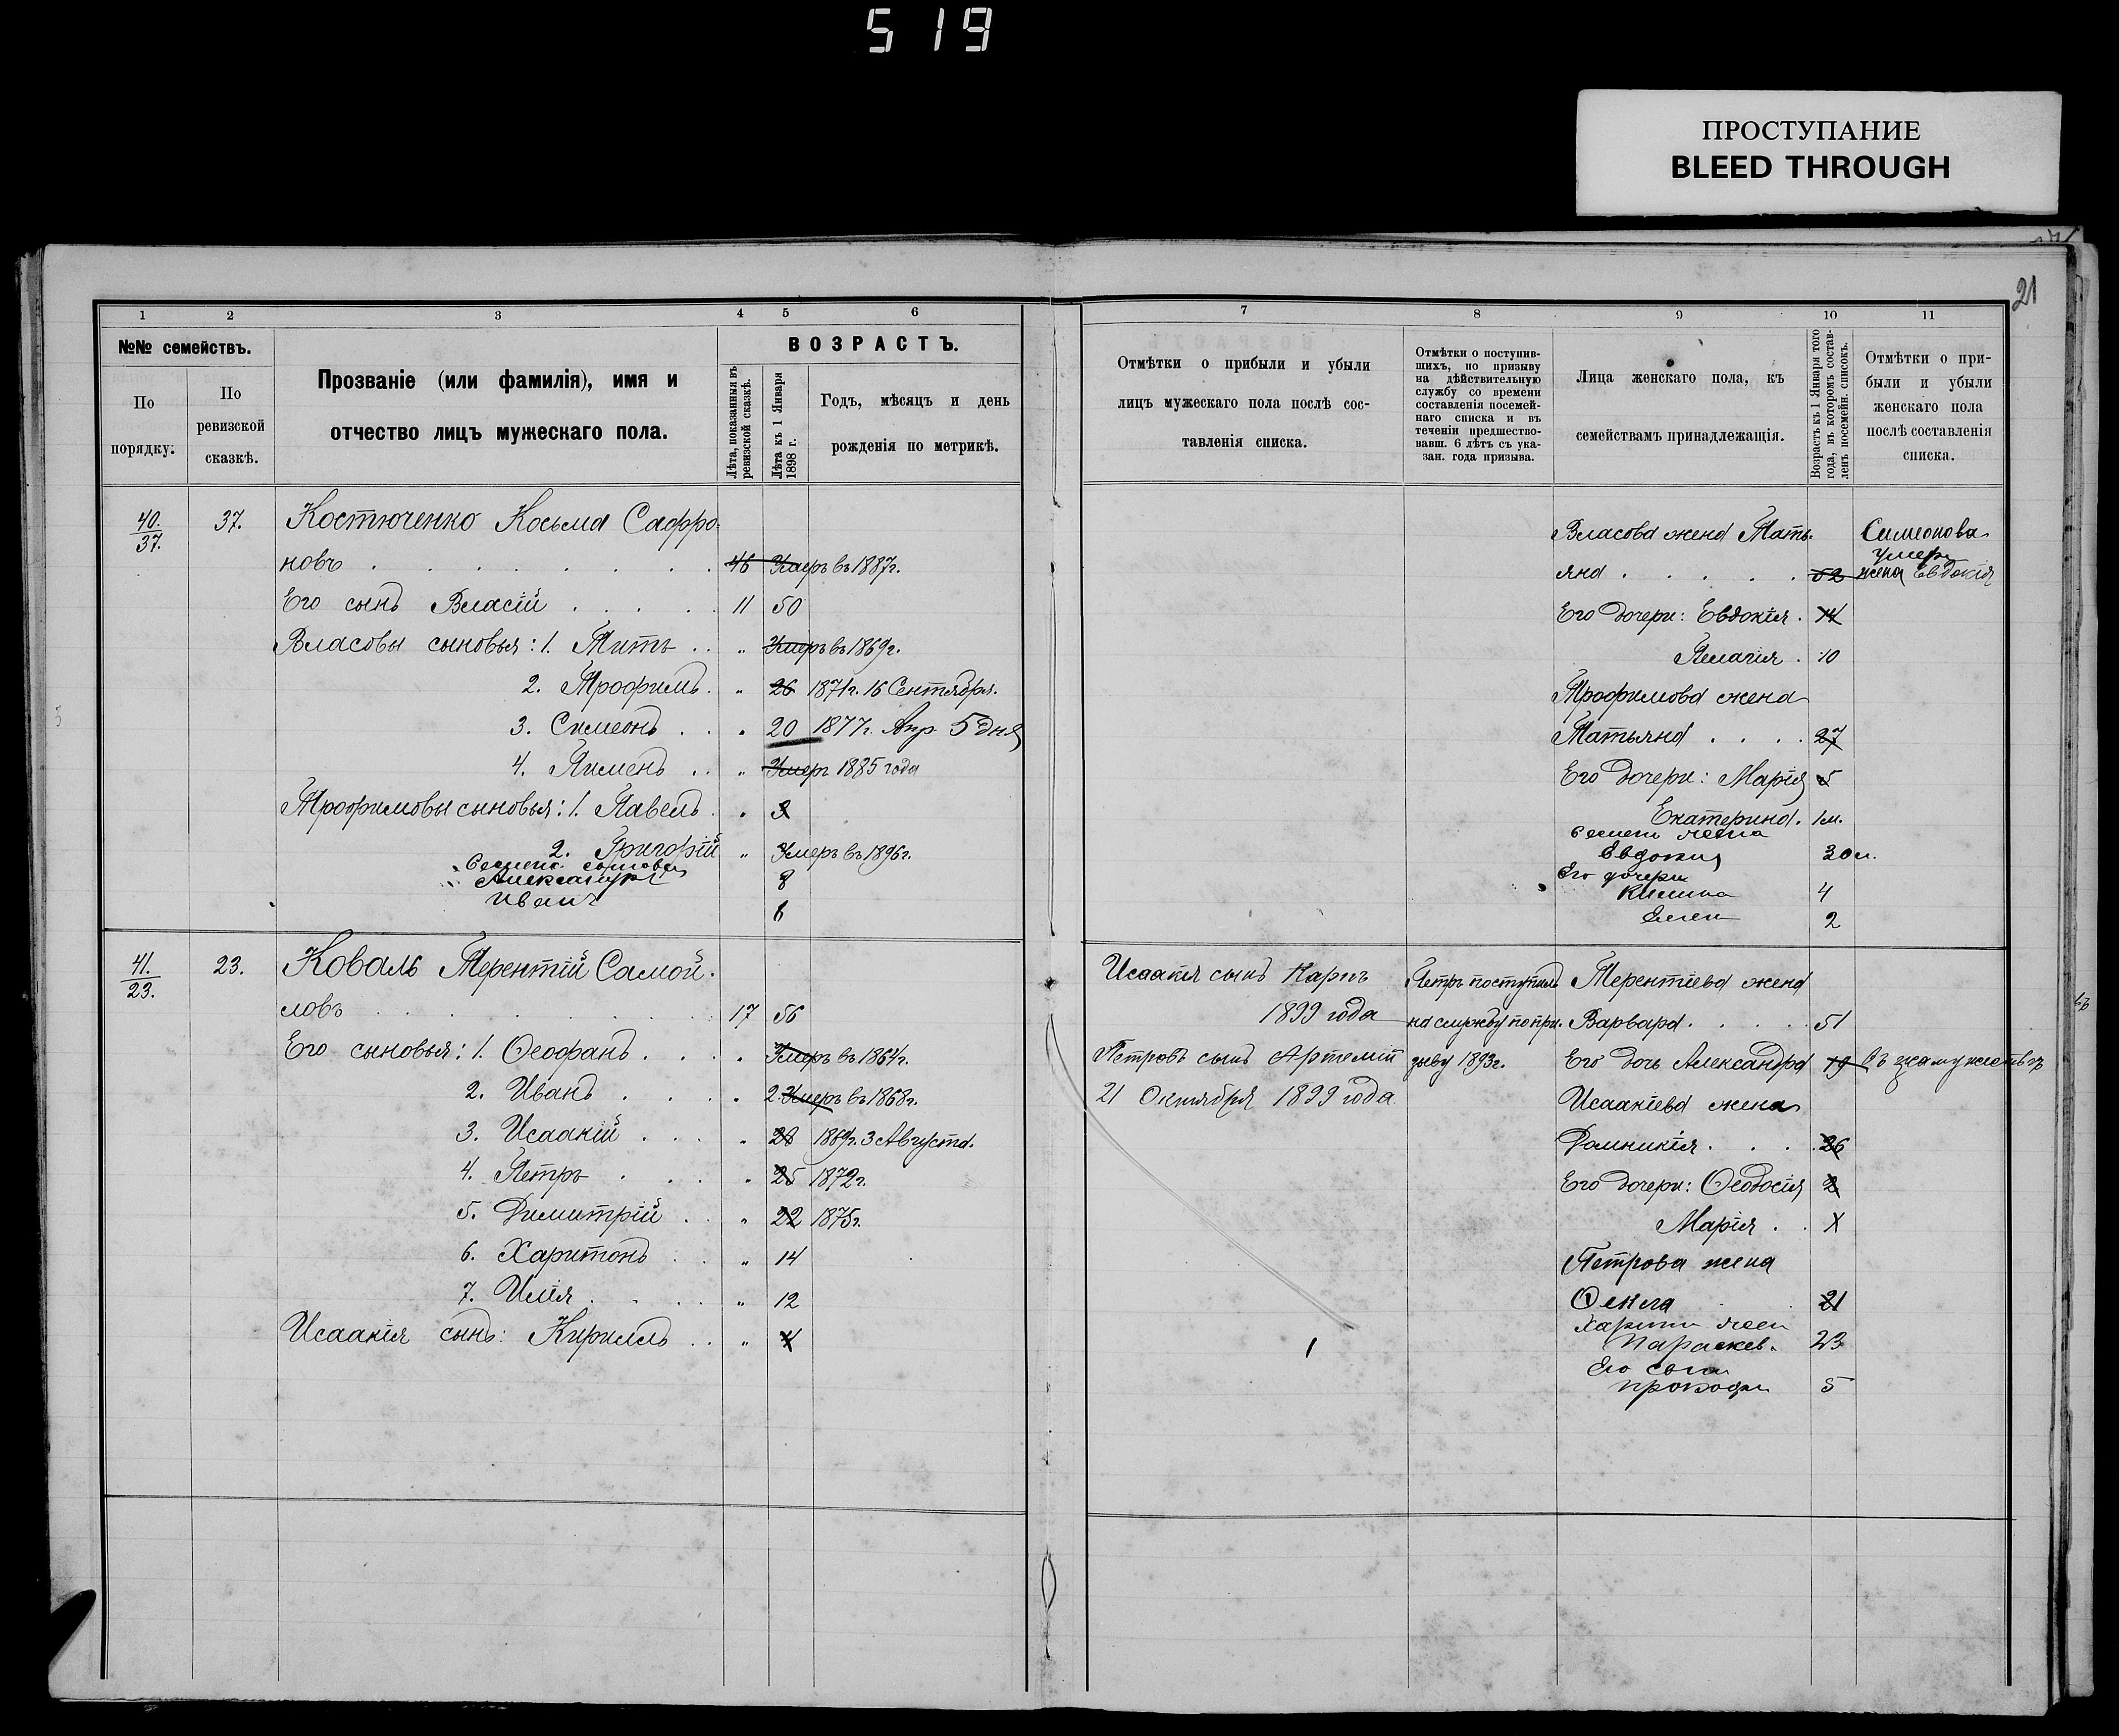 519
ПРОСТУПАНИЕ
BLEED THROUGH
21
1 2 3 4 5 6
№№ семействъ.
По порядку.
По ревизской сказкѣ.
Прозваніе (или фамилія), имя и
отчество лицъ мужескаго пола.
ВОЗРАСТЪ.
Лѣта, показанныя въ ревизской сказкѣ.
Лѣта къ 1 Января 1898 г.
Годъ, мѣсяцъ и день
рожденія по метрикѣ.
40./37. 37. Костюченко Косьма Сафро-
новъ 46 Умеръ въ 1887г.
Его сынъ Власій 11 50
Власовы сыновья: 1. Титъ " Умеръ въ 1869г.
2. Трофимъ " 26 1871г. 16 Сентября.
3. Симеонъ " 20 1877г. Апр. 5 дня
4. Пименъ " Умеръ 1885 года
Трофимовы сыновья: 1. Павелъ " 3
2. Григорій " Умеръ въ 1896г.
Александръ 8
Иванъ 6
41./23. 23. Коваль Терентій Самой-
ловъ 17 56
Его сыновья: 1. Ѳеофанъ " Умеръ въ 1864г.
2. Иванъ " 2. Умеръ въ 1868г.
3. Исаакій " 28 1869г. 3 Августа.
4. Петръ " 25 1872г.
5. Димитрій " 22 1875г.
6. Харитонъ " 14
7. Илія " 12
Исаакія сынъ: Кириллъ " 4
7 8 9 10 11
Отмѣтки о прибыли и убыли
лицъ мужескаго пола послѣ сос-
тавленія списка.
Отмѣтки о поступив-
шихъ, по призыву
на дѣйствительную
службу со времени
составленія посемей-
наго списка и въ
теченіи предшество-
вавш. 6 лѣтъ съ ука-
зан. года призыва.
Лица женскаго пола, къ
семействамъ принадлежащія.
Возрастъ къ 1 Января того
года, въ которомъ состав-
ленъ посемейн. списокъ.
Отмѣтки о при-
были и убыли
женскаго пола
послѣ составленія
списка.
Власова жена Тать- Симеонова
умер
яна 52 жена Евдокія
Его дочери: Евдокія 14
Пелагія 10
Трофимова жена
Татьяна 27
Его дочери: Марія 5
Екатерина 1м.
Евдокия 30
Его дочери
4
Елен 2
Исаакія сынъ Карпъ Петръ поступилъ Терентіева жена
1899 года на службу по при- Варвара 51
Петровъ сынъ Артемій зыву 1893г. Его дочь Александра 19 Въ замужествѣ
21 Октября 1899 года Исаакіева жена
Домникія 26
Его дочери: Ѳеодосія 2
Марія
Петрова жена
Ѳекла 21
Параскев. 23
Его сын
Прокофи 5